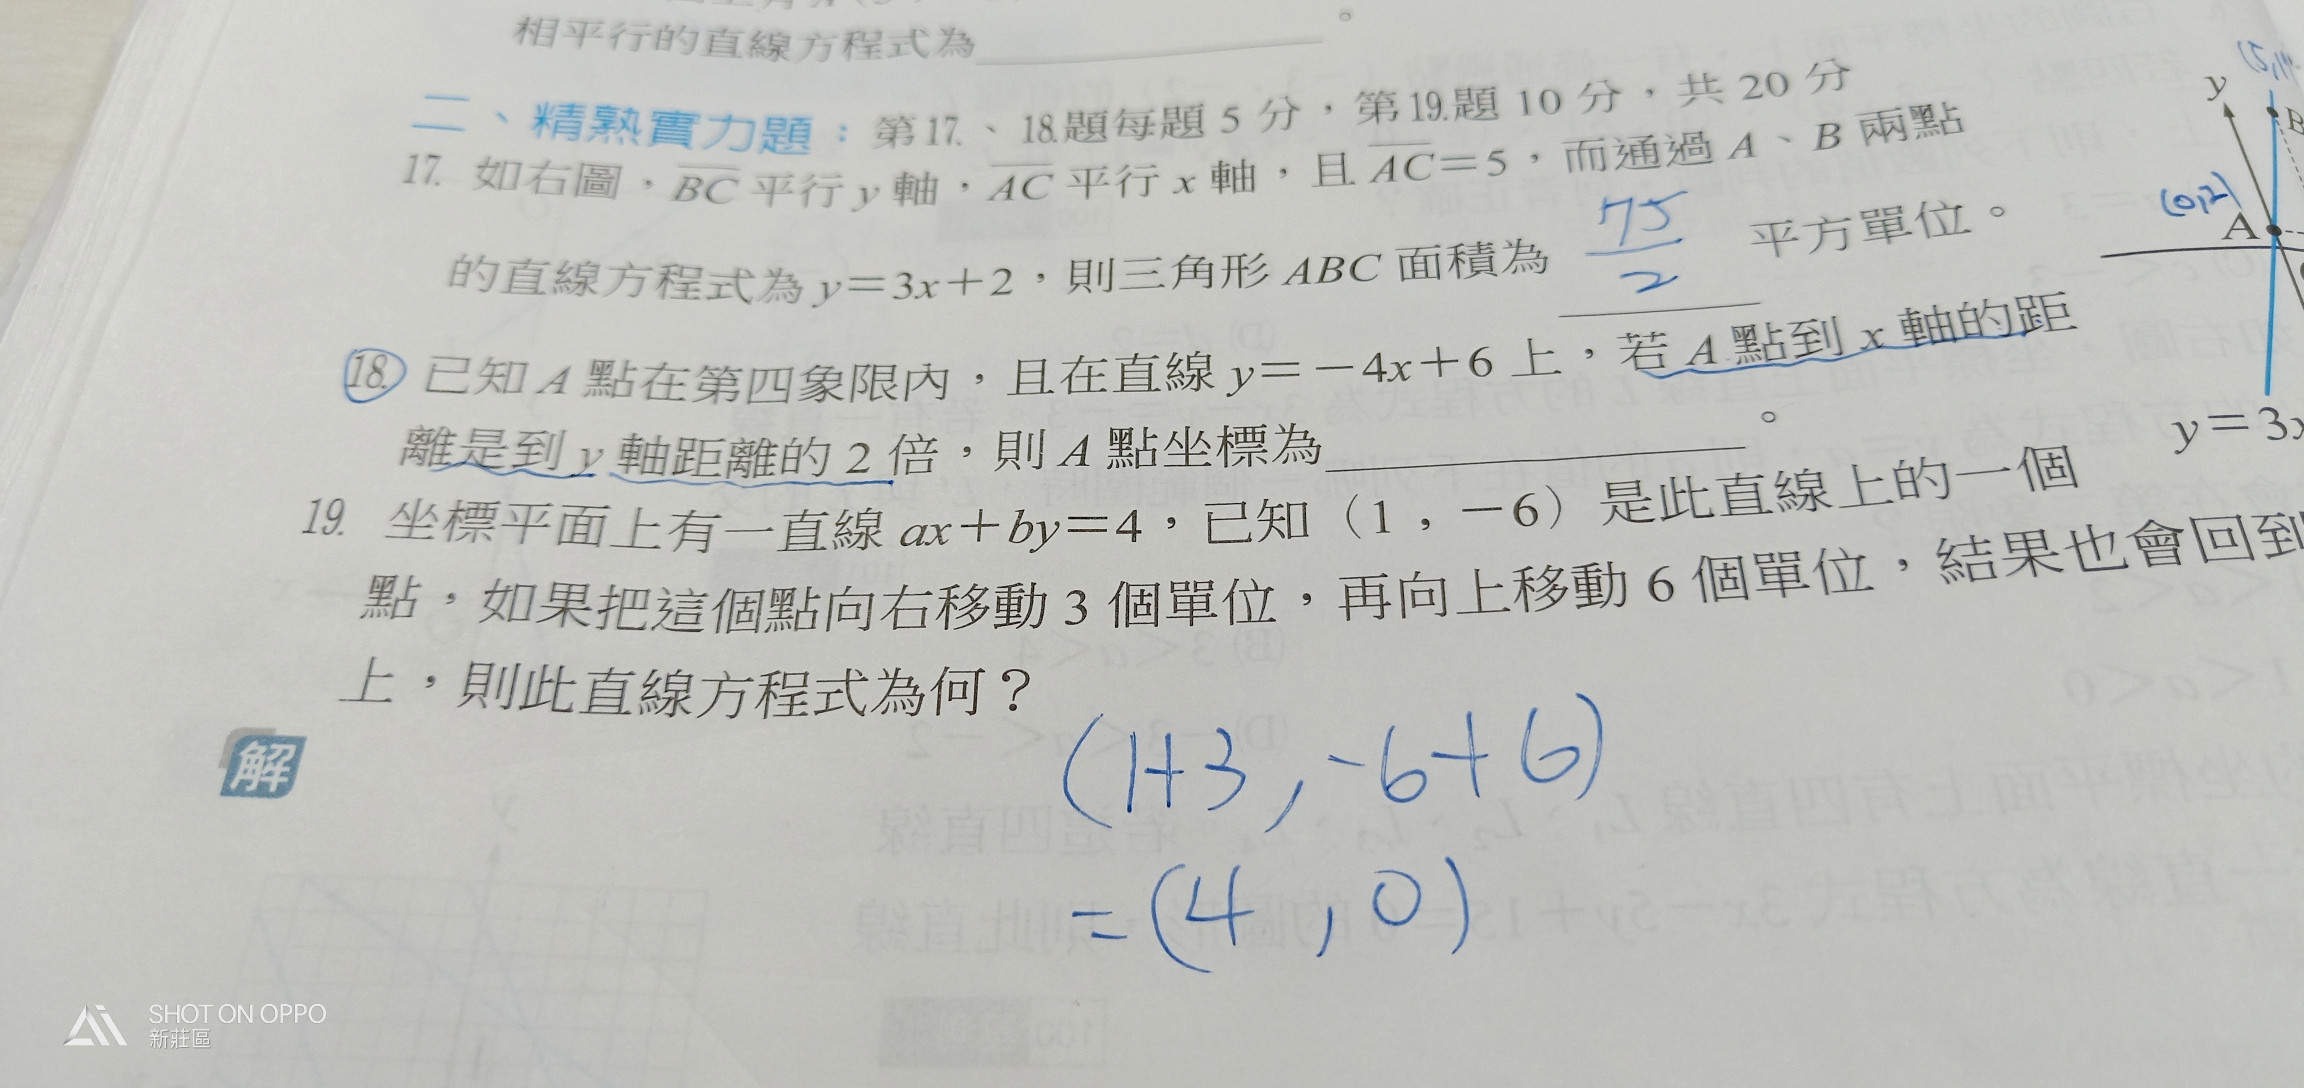 相平行的直線方程式為 。
二、精熟實力題：第17.、18.題每題5分，第19.題10分，共20分
17. 如右圖，BC平行y軸，AC平行x軸，且AC=5，而通過A、B兩點
的直線方程式為y=3x+2，則三角形ABC面積為 75/2 平方單位。
18. 已知A點在第四象限內，且在直線y=-4x+6上，若A點到x軸的距
離是到y軸距離的2倍，則A點坐標為 。
19. 坐標平面上有一直線ax+by=4，已知（1，-6）是此直線上的一個
點，如果把這個點向右移動3個單位，再向上移動6個單位，結果也會回到
上，則此直線方程式為何？
解
(1+3,-6+6)
=(4,0)
y
B
(0,2)
A
y=3x
SHOT ON OPPO
新莊區